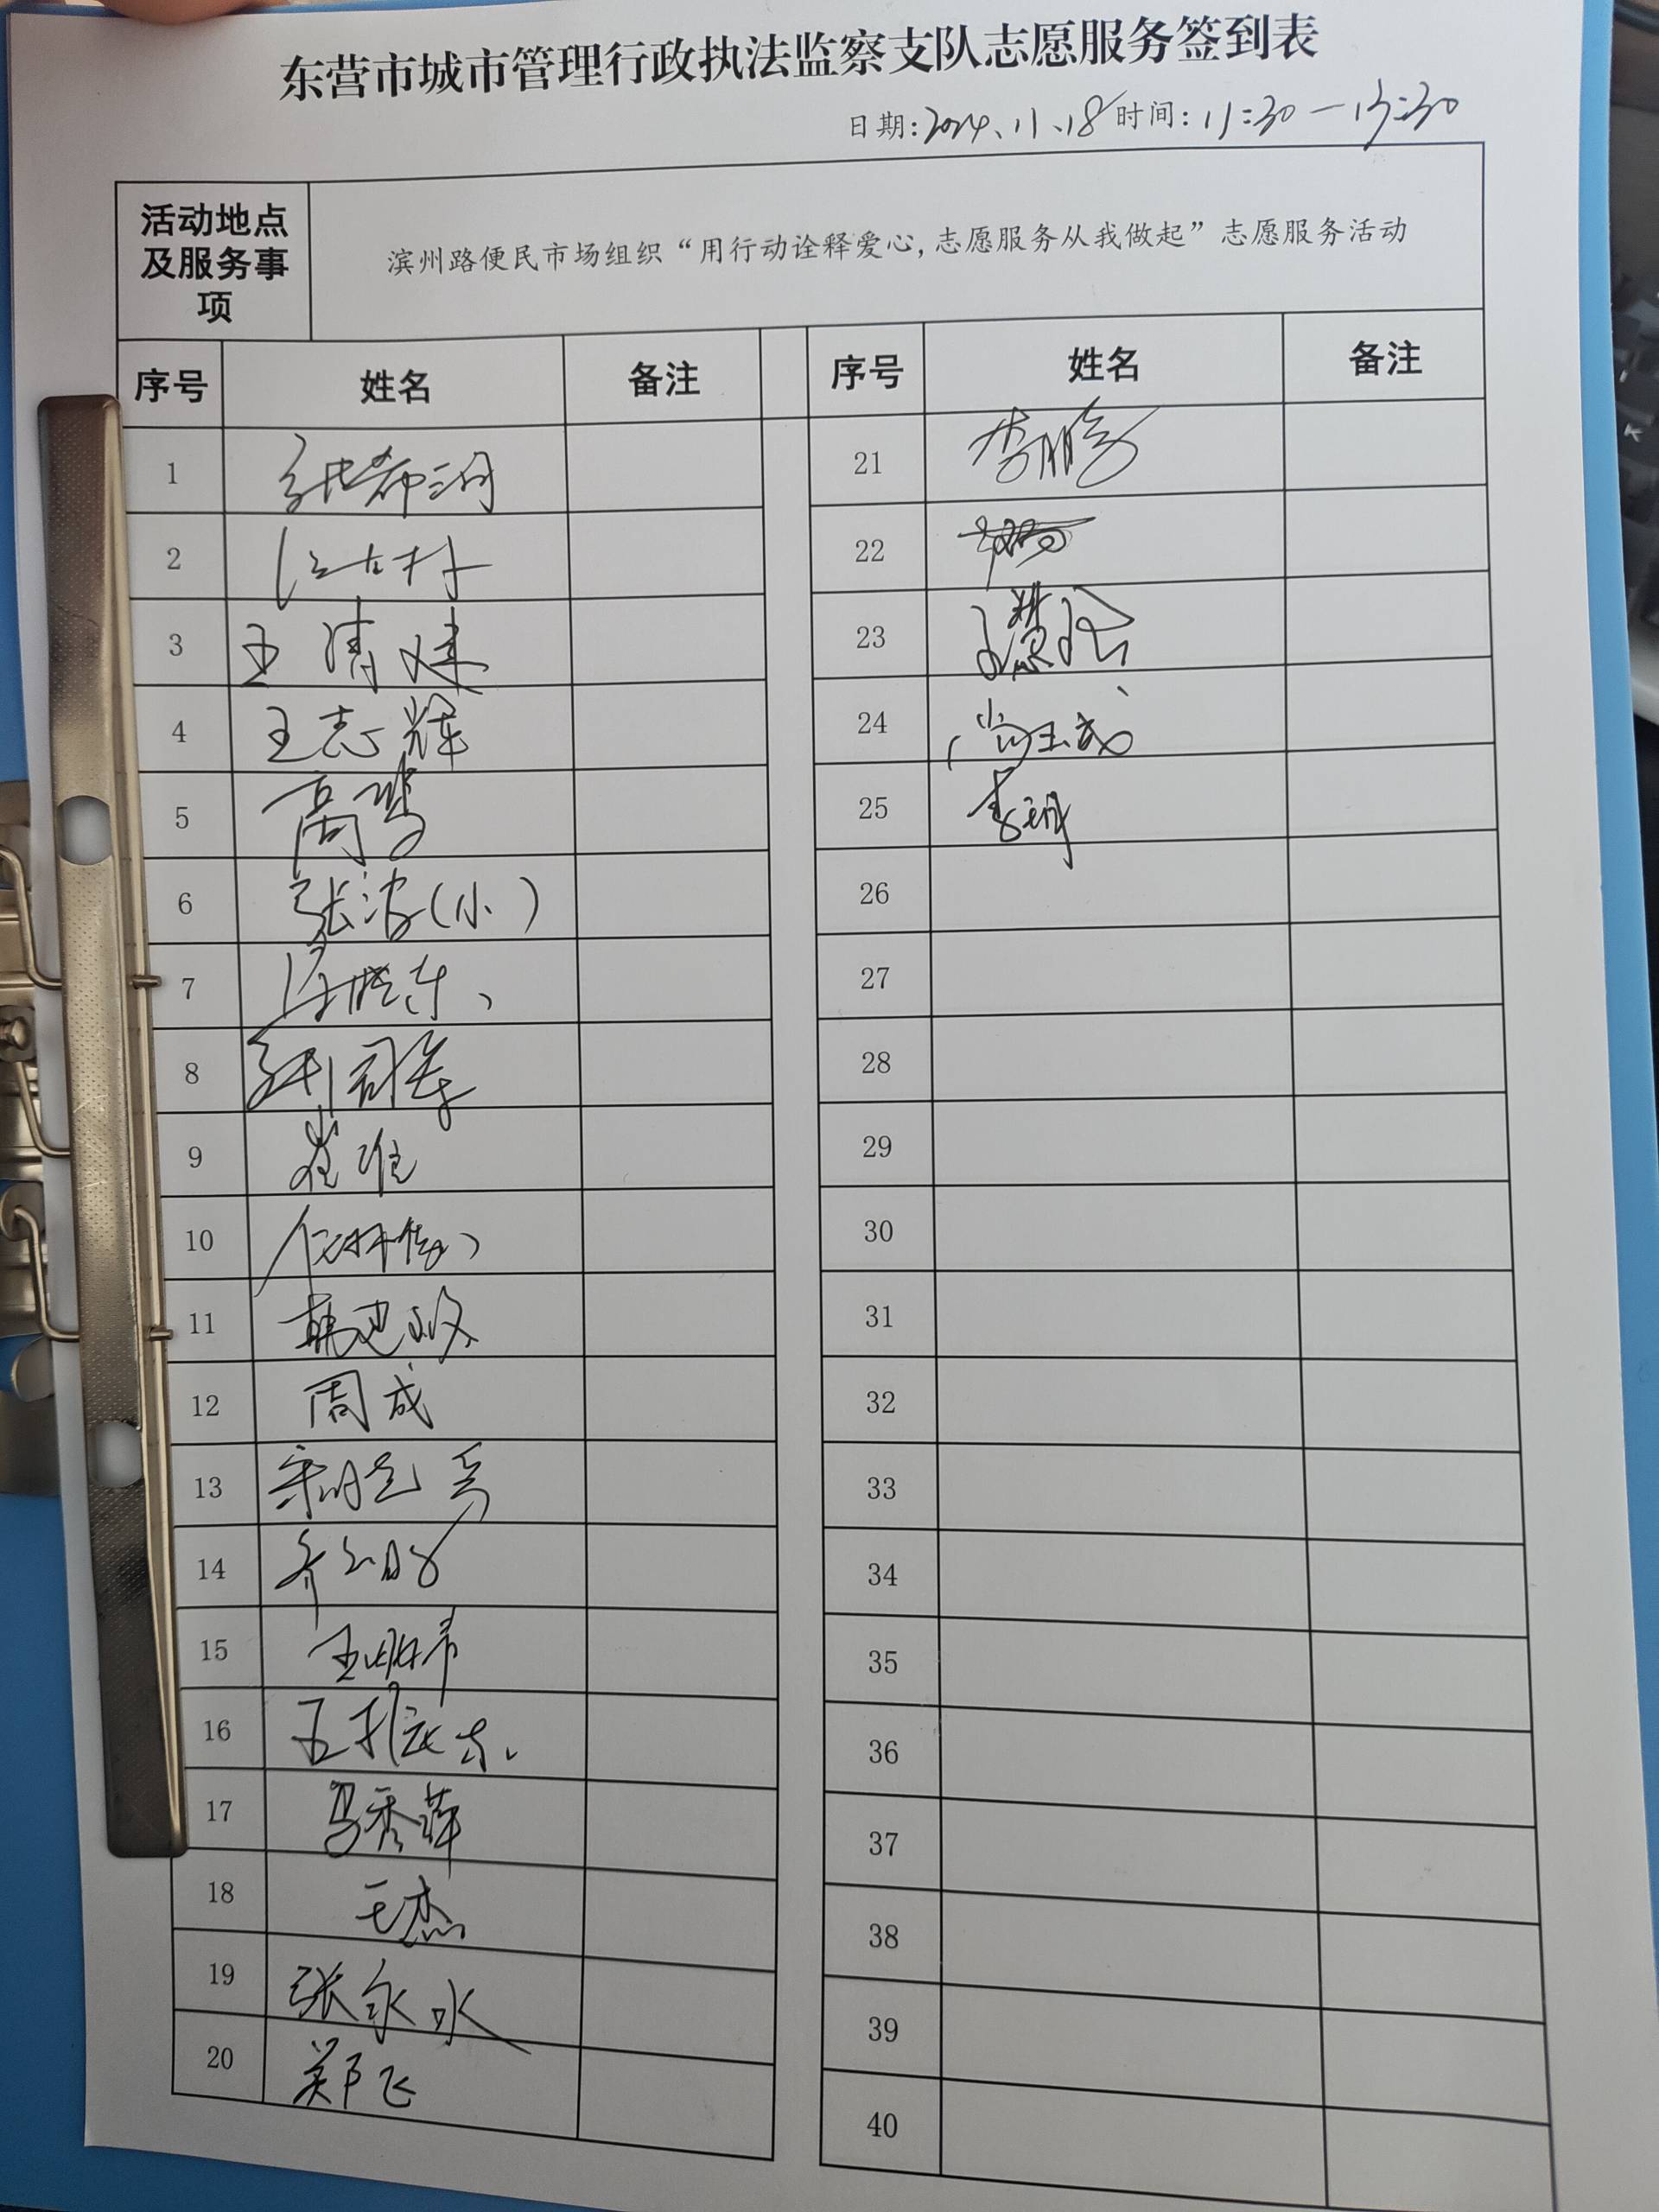 东营市城市管理行政执法监察支队志愿服务签到表
日期:2024、11、18 时间: 11:30—13:30
活动地点
及服务事
项
滨州路便民市场组织“用行动诠释爱心,志愿服务从我做起”志愿服务活动
序号 姓名 备注 序号 姓名 备注
1 21 李鹏
2 22
3 王清建 23
4 王志辉 24 尚玉武
5 高 25
6 张波(小) 26
7 27
8 28
9 崔准 29
10 30
11 韩建 31
12 周成 32
13 33
14 34
15 王 35
16 王振东 36
17 马秀萍 37
18 王杰 38
19 张永水 39
20 郑飞 40